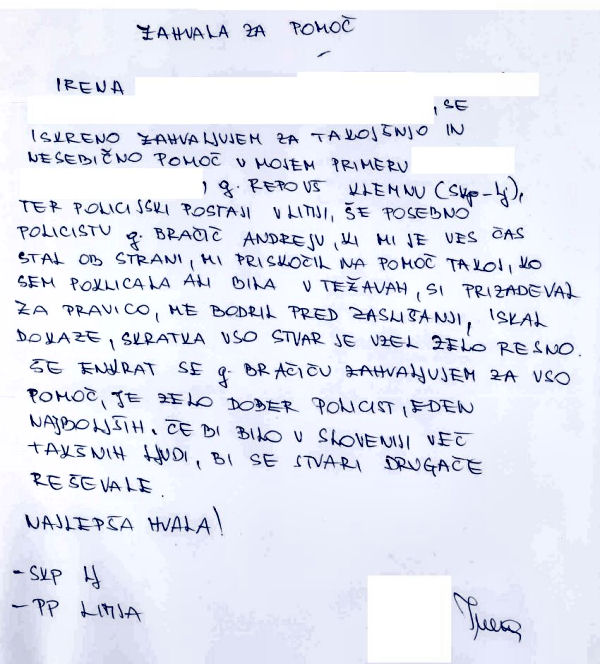 ZAHVALA ZA POMOČ
IRENA
, SE
ISKRENO ZAHVALJUJEM ZA TAKOJŠNJO IN
NESEBIČNO POMOČ V MOJEM PRIMERU
, g. REPOVŠ KLEMNU (SKP-LJ),
TER POLICIJSKI POSTAJI V LITIJI, ŠE POSEBNO
POLICISTU g. BRAČIČ ANDREJU, KI MI JE VES ČAS
STAL OB STRANI, MI PRISKOČIL NA POMOČ TAKOJ, KO
SEM POKLICALA ALI BILA V TEŽAVAH, SI PRIZADEVAL
ZA PRAVICO, ME BODRIL PRED ZASLIŠANJI, ISKAL
DOKAZE, SKRATKA VSO STVAR JE VZEL ZELO RESNO.
ŠE ENKRAT SE g. BRAČIČU ZAHVALJUJEM ZA VSO
POMOČ, JE ZELO DOBER POLICIST, EDEN
NAJBOLJŠIH. ČE BI BILO V SLOVENIJI VEČ
TAKŠNIH LJUDI, BI SE STVARI DRUGAČE
REŠEVALE.
NAJLEPŠA HVALA!
- SKP LJ
- PP LITIJA
Irena